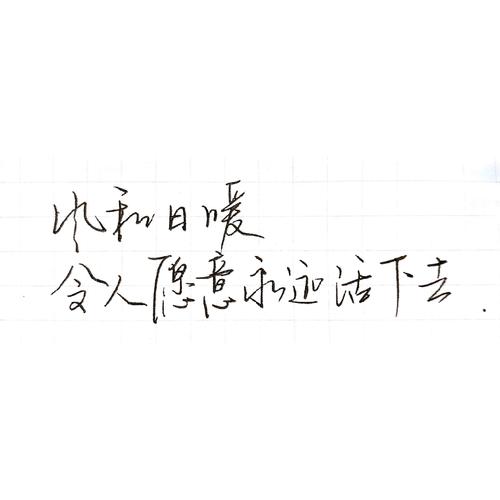 风和日暖
令人愿意永远活下去.